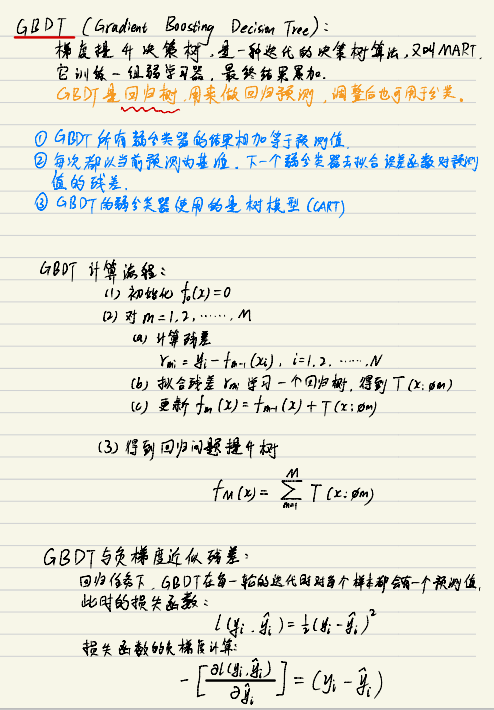 GBDT (Gradient Boosting Decision Tree):
梯度提升决策树,是一种迭代的决策树算法,又叫MART,
它训练一组弱学习器,最终结果累加.
GBDT是回归树,用来做回归预测,调整后也可用于分类。
① GBDT所有弱分类器的结果相加等于预测值.
② 每次都以当前预测为基准,下一个弱分类器去拟合误差函数对预测
值的残差.
③ GBDT的弱分类器使用的是树模型(CART)
GBDT 计算流程:
(1) 初始化 f₀(x)=0
(2) 对 m=1,2,……,M
(a) 计算残差
rₘᵢ = yᵢ - fₘ₋₁(xᵢ), i=1,2,……,N
(b) 拟合残差 rₘᵢ 学习一个回归树,得到 T(x;øm)
(c) 更新 fₘ(x) = fₘ₋₁(x) + T(x;øm)
(3) 得到回归问题提升树
f_M(x) = \sum_{m=1}^{M} T(x;øm)
GBDT与负梯度近似残差:
回归任务下,GBDT在每一轮的迭代时对每个样本都会有一个预测值,
此时的损失函数:
l(yᵢ,ŷᵢ) = ½(yᵢ-ŷᵢ)²
损失函数的负梯度计算:
-[∂l(yᵢ,ŷᵢ)/∂ŷᵢ] = (yᵢ-ŷᵢ)